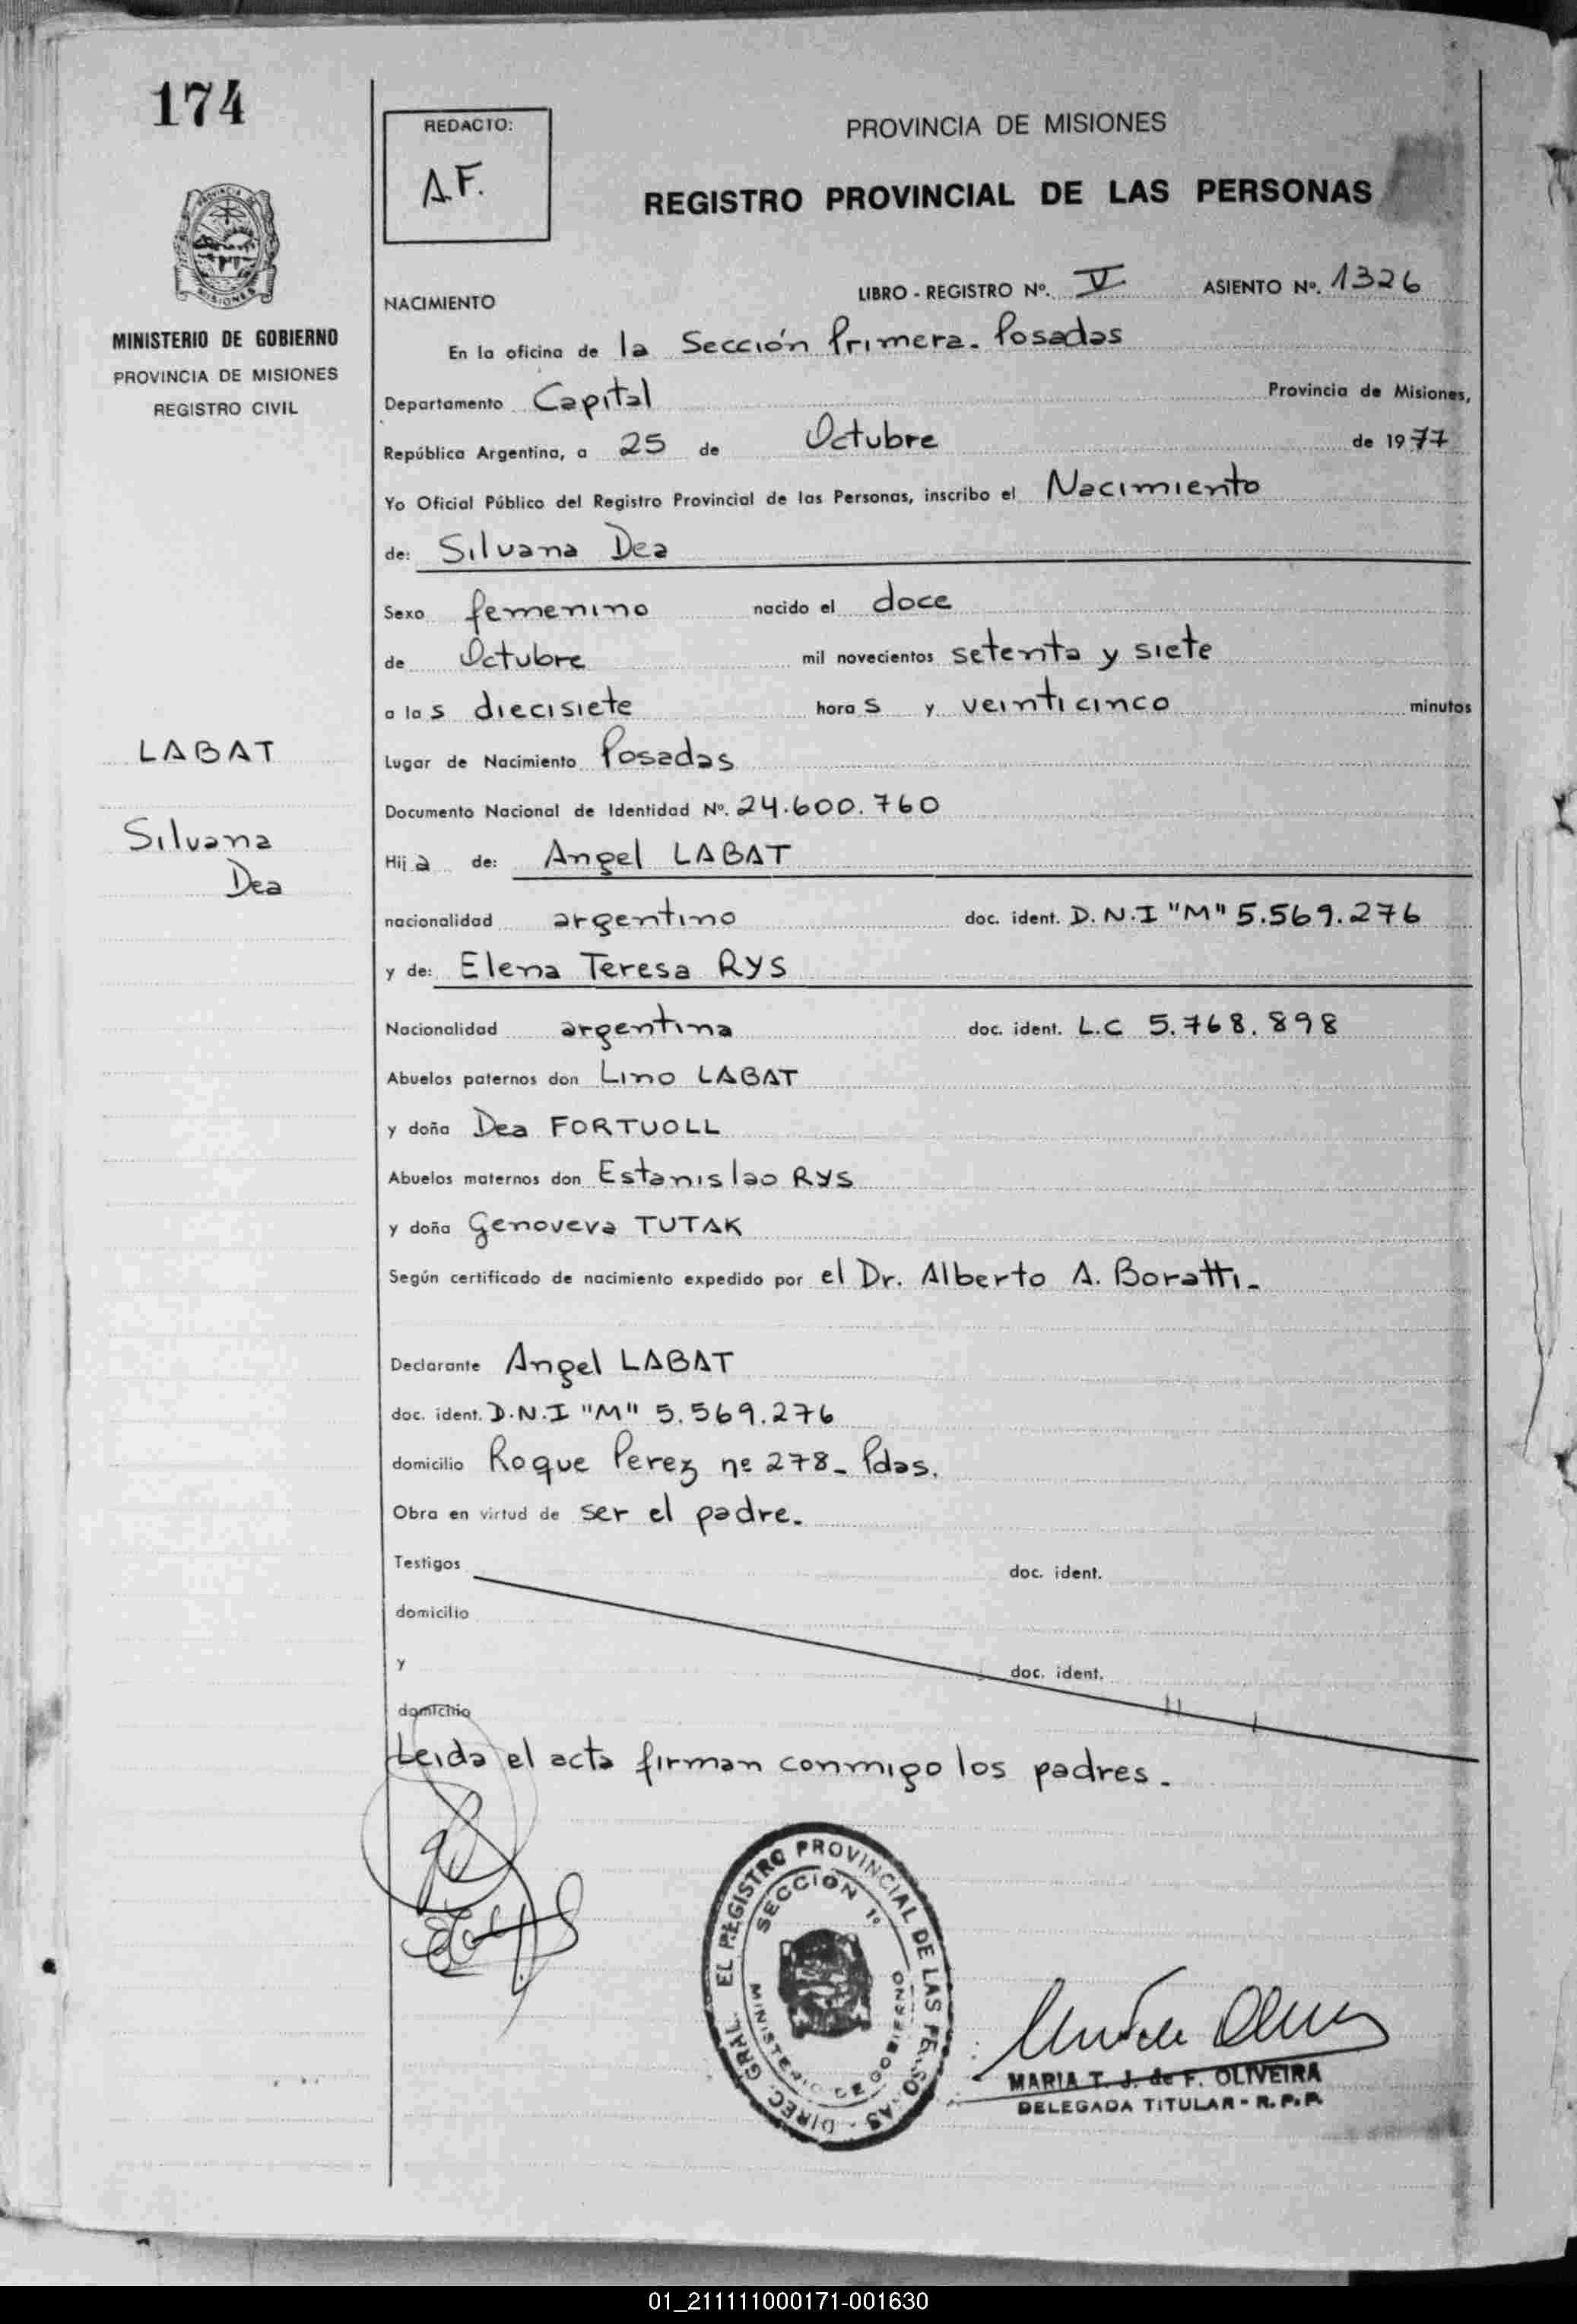 174
REDACTO:
A.F.
PROVINCIA DE MISIONES
REGISTRO PROVINCIAL DE LAS PERSONAS
MINISTERIO DE GOBIERNO
PROVINCIA DE MISIONES
REGISTRO CIVIL
NACIMIENTO LIBRO - REGISTRO Nº. V ASIENTO Nº. 1326
En la oficina de la Sección Primera. Posadas
Departamento Capital Provincia de Misiones,
República Argentina, a 25 de Octubre de 1977
Yo Oficial Público del Registro Provincial de las Personas, inscribo el Nacimiento
de: Silvana Dea
Sexo femenino nacido el doce
de Octubre mil novecientos setenta y siete
a las diecisiete horas y veinticinco minutos
LABAT
Silvana
Dea
Lugar de Nacimiento Posadas
Documento Nacional de Identidad Nº. 24.600.760
Hija de: Angel LABAT
nacionalidad argentino doc. ident. D.N.I "M" 5.569.276
y de: Elena Teresa RYS
Nacionalidad argentina doc. ident. L.C 5.768.898
Abuelos paternos don Lino LABAT
y doña Dea FORTUOLL
Abuelos maternos don Estanislao RYS
y doña Genoveva TUTAK
Según certificado de nacimiento expedido por el Dr. Alberto A. Boratti.
Declarante Angel LABAT
doc. ident. D.N.I "M" 5.569.276
domicilio Roque Perez nº 278_ Pdas.
Obra en virtud de ser el padre.
Testigos doc. ident.
domicilio
y doc. ident.
domicilio
Leida el acta firman conmigo los padres.
DIREC. GRAL. EL REGISTRO PROVINCIAL DE LAS PERSONAS
SECCION 1º
MINISTERIO DE GOBIERNO
MARIA T. J. de F. OLIVEIRA
DELEGADA TITULAR - R.P.P.
01_211111000171-001630